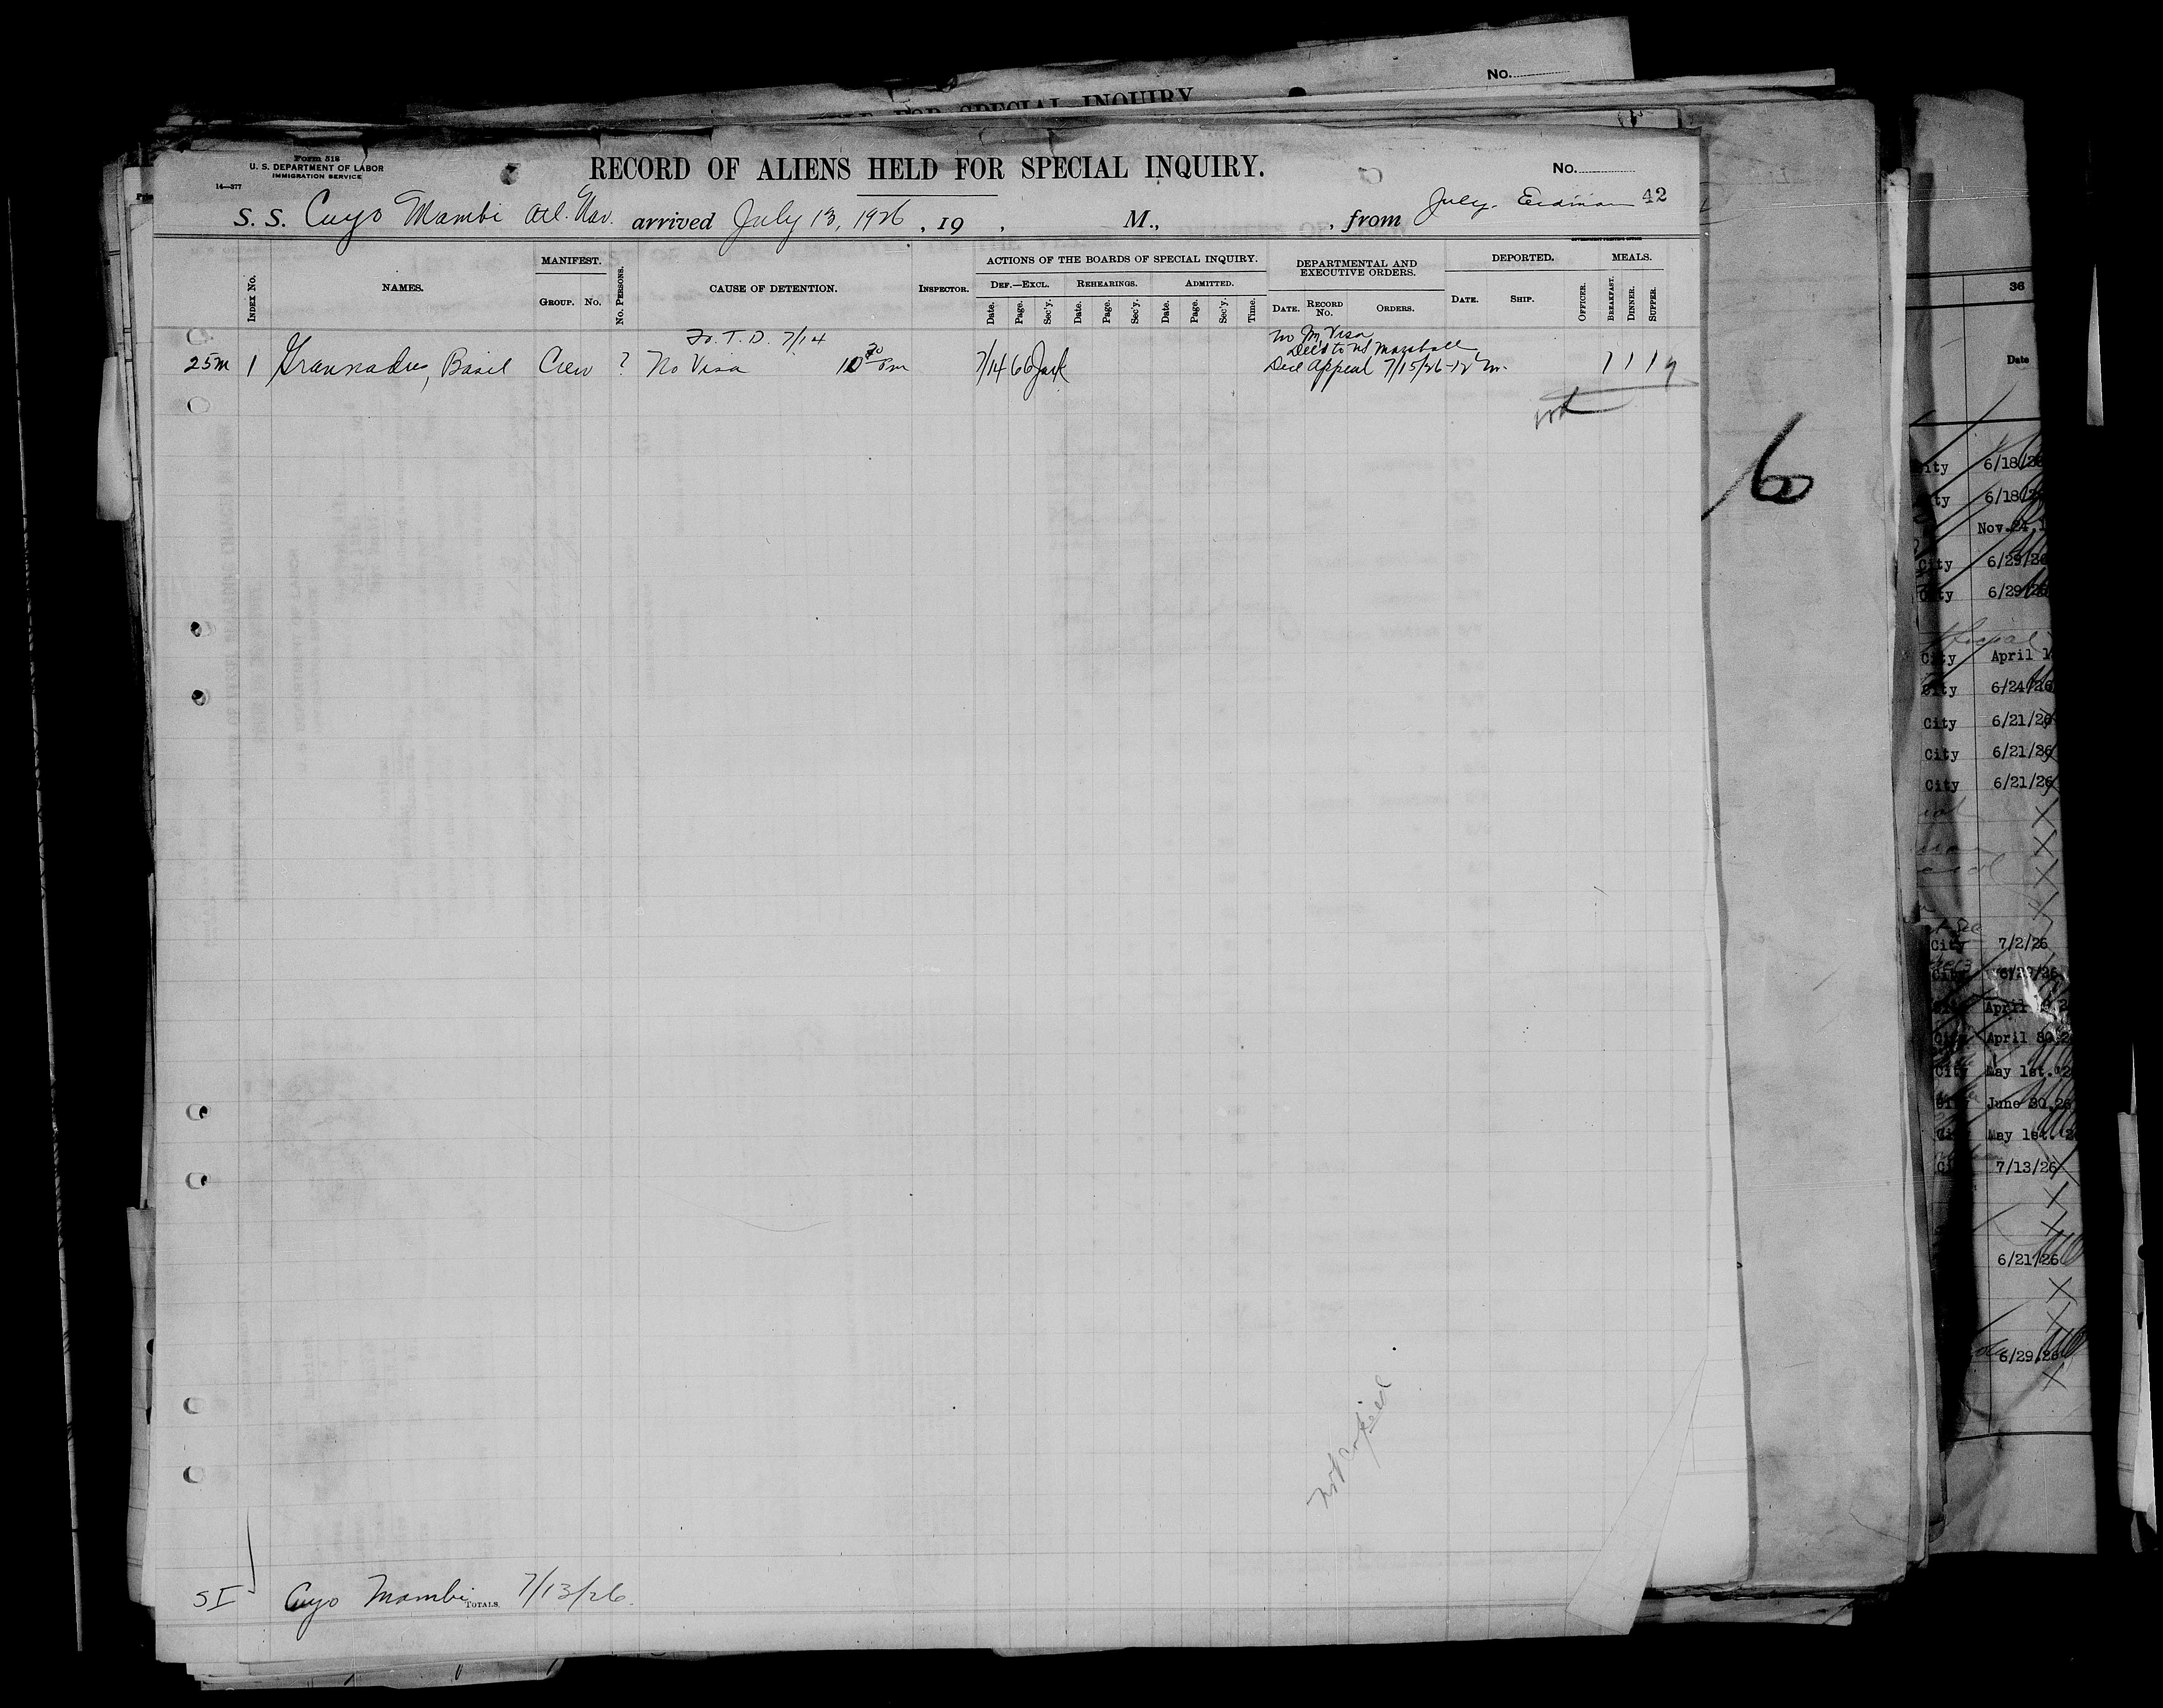 No.
FOR SPECIAL INQUIRY
Form 518
U. S. DEPARTMENT OF LABOR
IMMIGRATION SERVICE
14—377
RECORD OF ALIENS HELD FOR SPECIAL INQUIRY.
No.
42
S. S. Cuyo Mambi Atl. Nav. arrived July 13, 1926, 19 , M., , from July. Erdman
GOVERNMENT PRINTING OFFICE
Index No. NAMES. MANIFEST. Group. No. No. Persons. CAUSE OF DETENTION. Inspector. ACTIONS OF THE BOARDS OF SPECIAL INQUIRY. DEPARTMENTAL AND EXECUTIVE ORDERS. DEPORTED. MEALS.
Def.—Excl. Rehearings. Admitted.
Date. Page. Sec'y. Date. Page. Sec'y. Date. Page. Sec'y. Time. Date. Record No. Orders. Date. Ship. Officer. Breakfast. Dinner. Supper.
T. D. 7/14
No Visa
to US Marshall
25m 1 Basil Crew ? No Visa 10 30 Pm 7/14 66 Jack Appeal 7/15/26 - 12 m. 1 1 1 9
6
36
Date
City 6/18/26
6/18/26
Nov. 24,
City 6/29/26
City 6/29/26
City April
City 6/24/26
City 6/21/26
City 6/21/26
City 6/21/26
City 7/2/26
City 6/29/26
April
City April 30,
City May 1st.
City June 30,26
May 1st.
7/13/26
6/21/26
6/29,26
not copied
SI Cuyo Mambi Totals. 7/13/26.